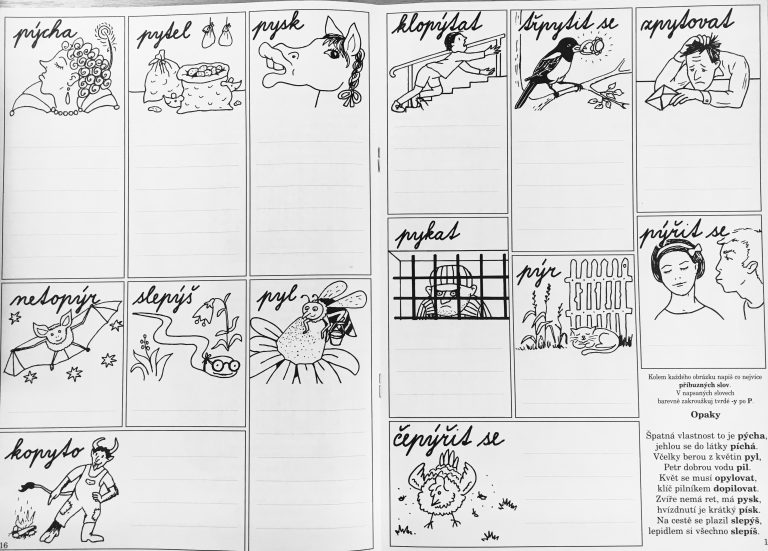 pýcha
pytel
pysk
netopýr
slepýš
pyl
kopyto
16
klopýtat
třpytit se
zpytovat
pykat
pýr
pýřit se
čepýřit se
Kolem každého obrázku napiš co nejvíce
příbuzných slov.
V napsaných slovech
barevně zakroužkuj tvrdé -y po P.
Opaky
Špatná vlastnost to je pýcha,
jehlou se do látky píchá.
Včelky berou z květin pyl,
Petr dobrou vodu pil.
Květ se musí opylovat,
klíč pilníkem dopilovat.
Zvíře nemá ret, má pysk,
hvízdnutí je krátký písk.
Na cestě se plazil slepýš,
lepidlem si všechno slepíš.